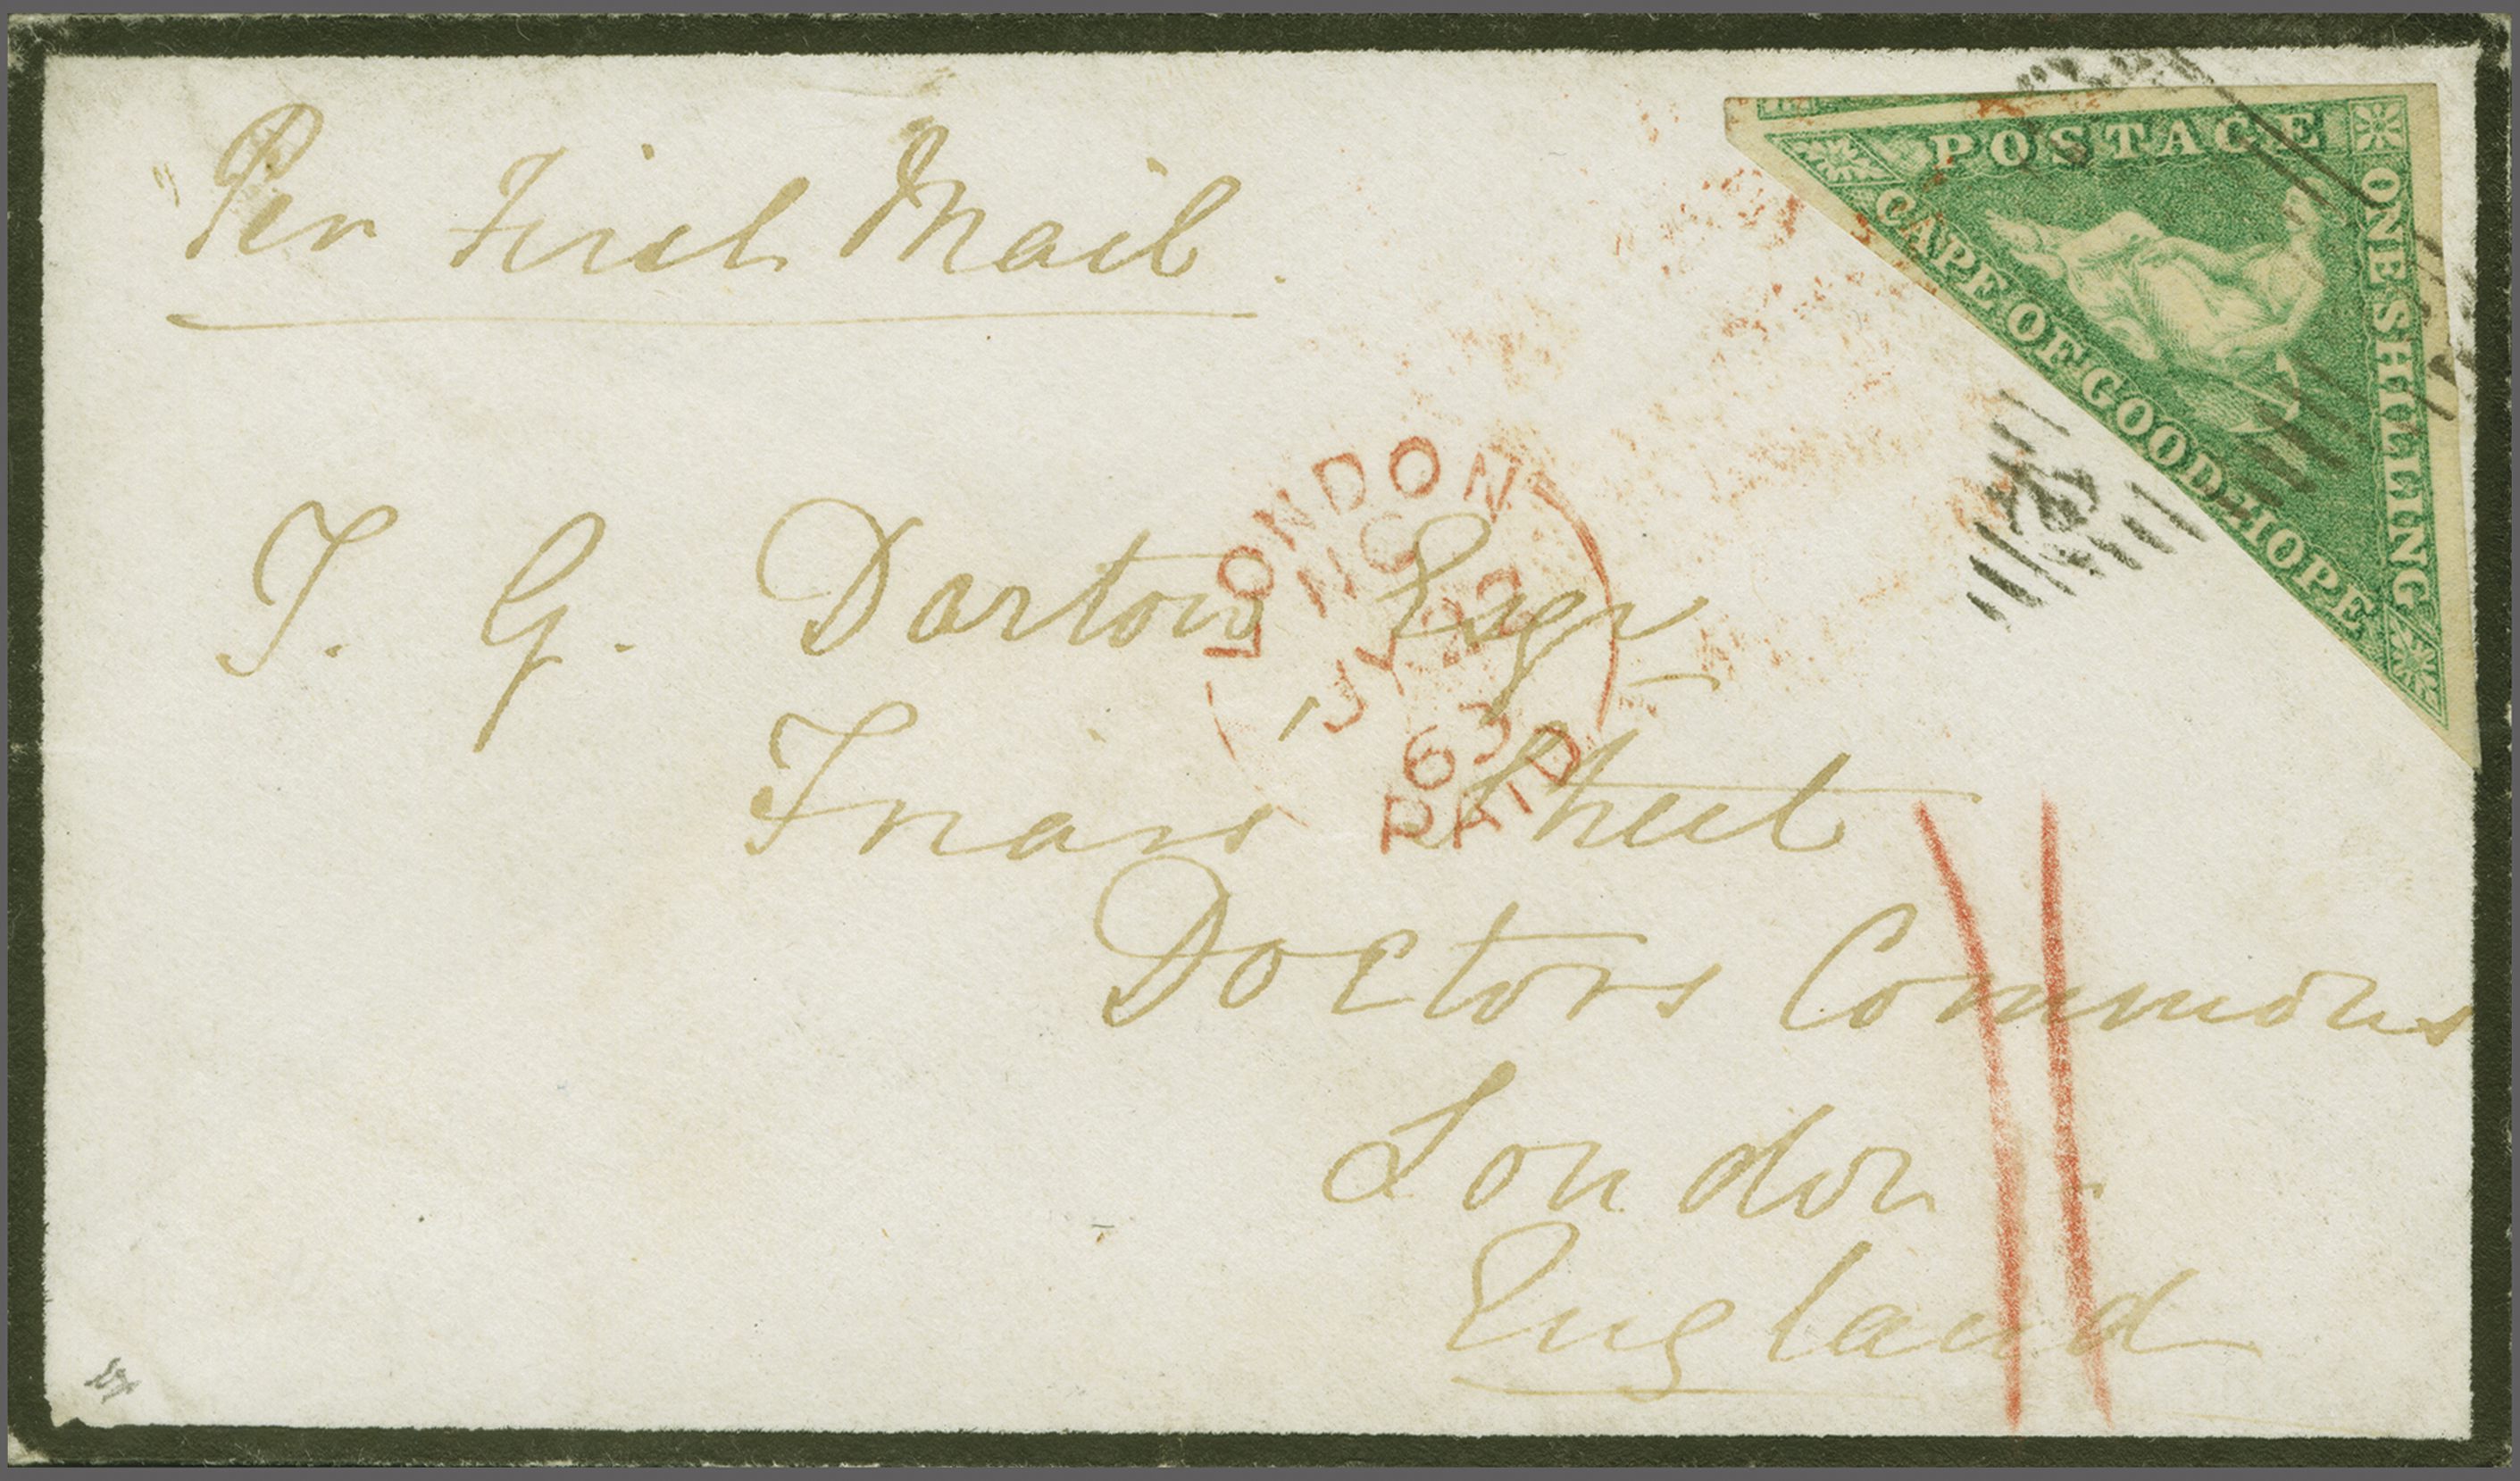 Per First Mail.
POSTAGE
ONE SHILLING
CAPE OF GOOD HOPE
LONDON
NC
JY 22
63
PAID
T. G. Darton Esqr
Friars Street
Doctors Commons
London
England